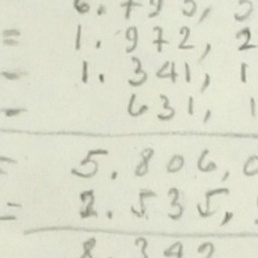 6. 793, 5
= 1. 972, 2
- 1. 341, 1
- 631, 1
= 5. 806, 0
= 2. 535,
8. 342